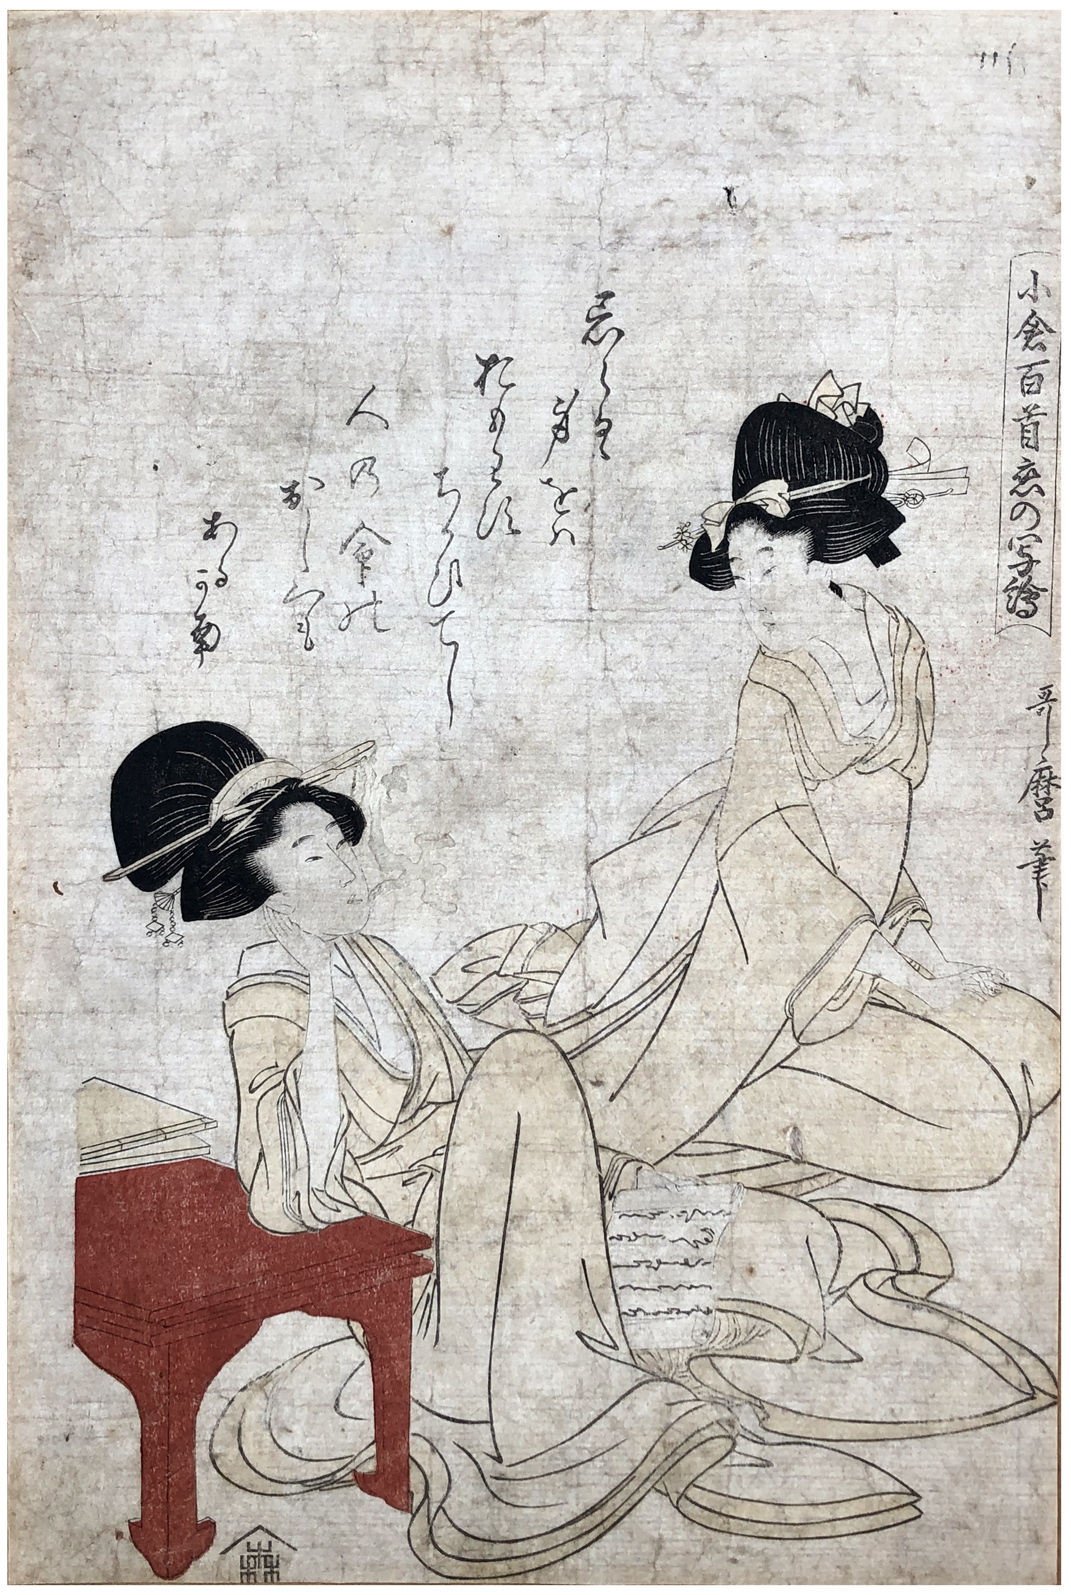 小倉百首恋の写絵
哥麿筆
忘らるゝ
身をハ
おもはす
ちかひてし
人乃命の
おしくも
あるかな